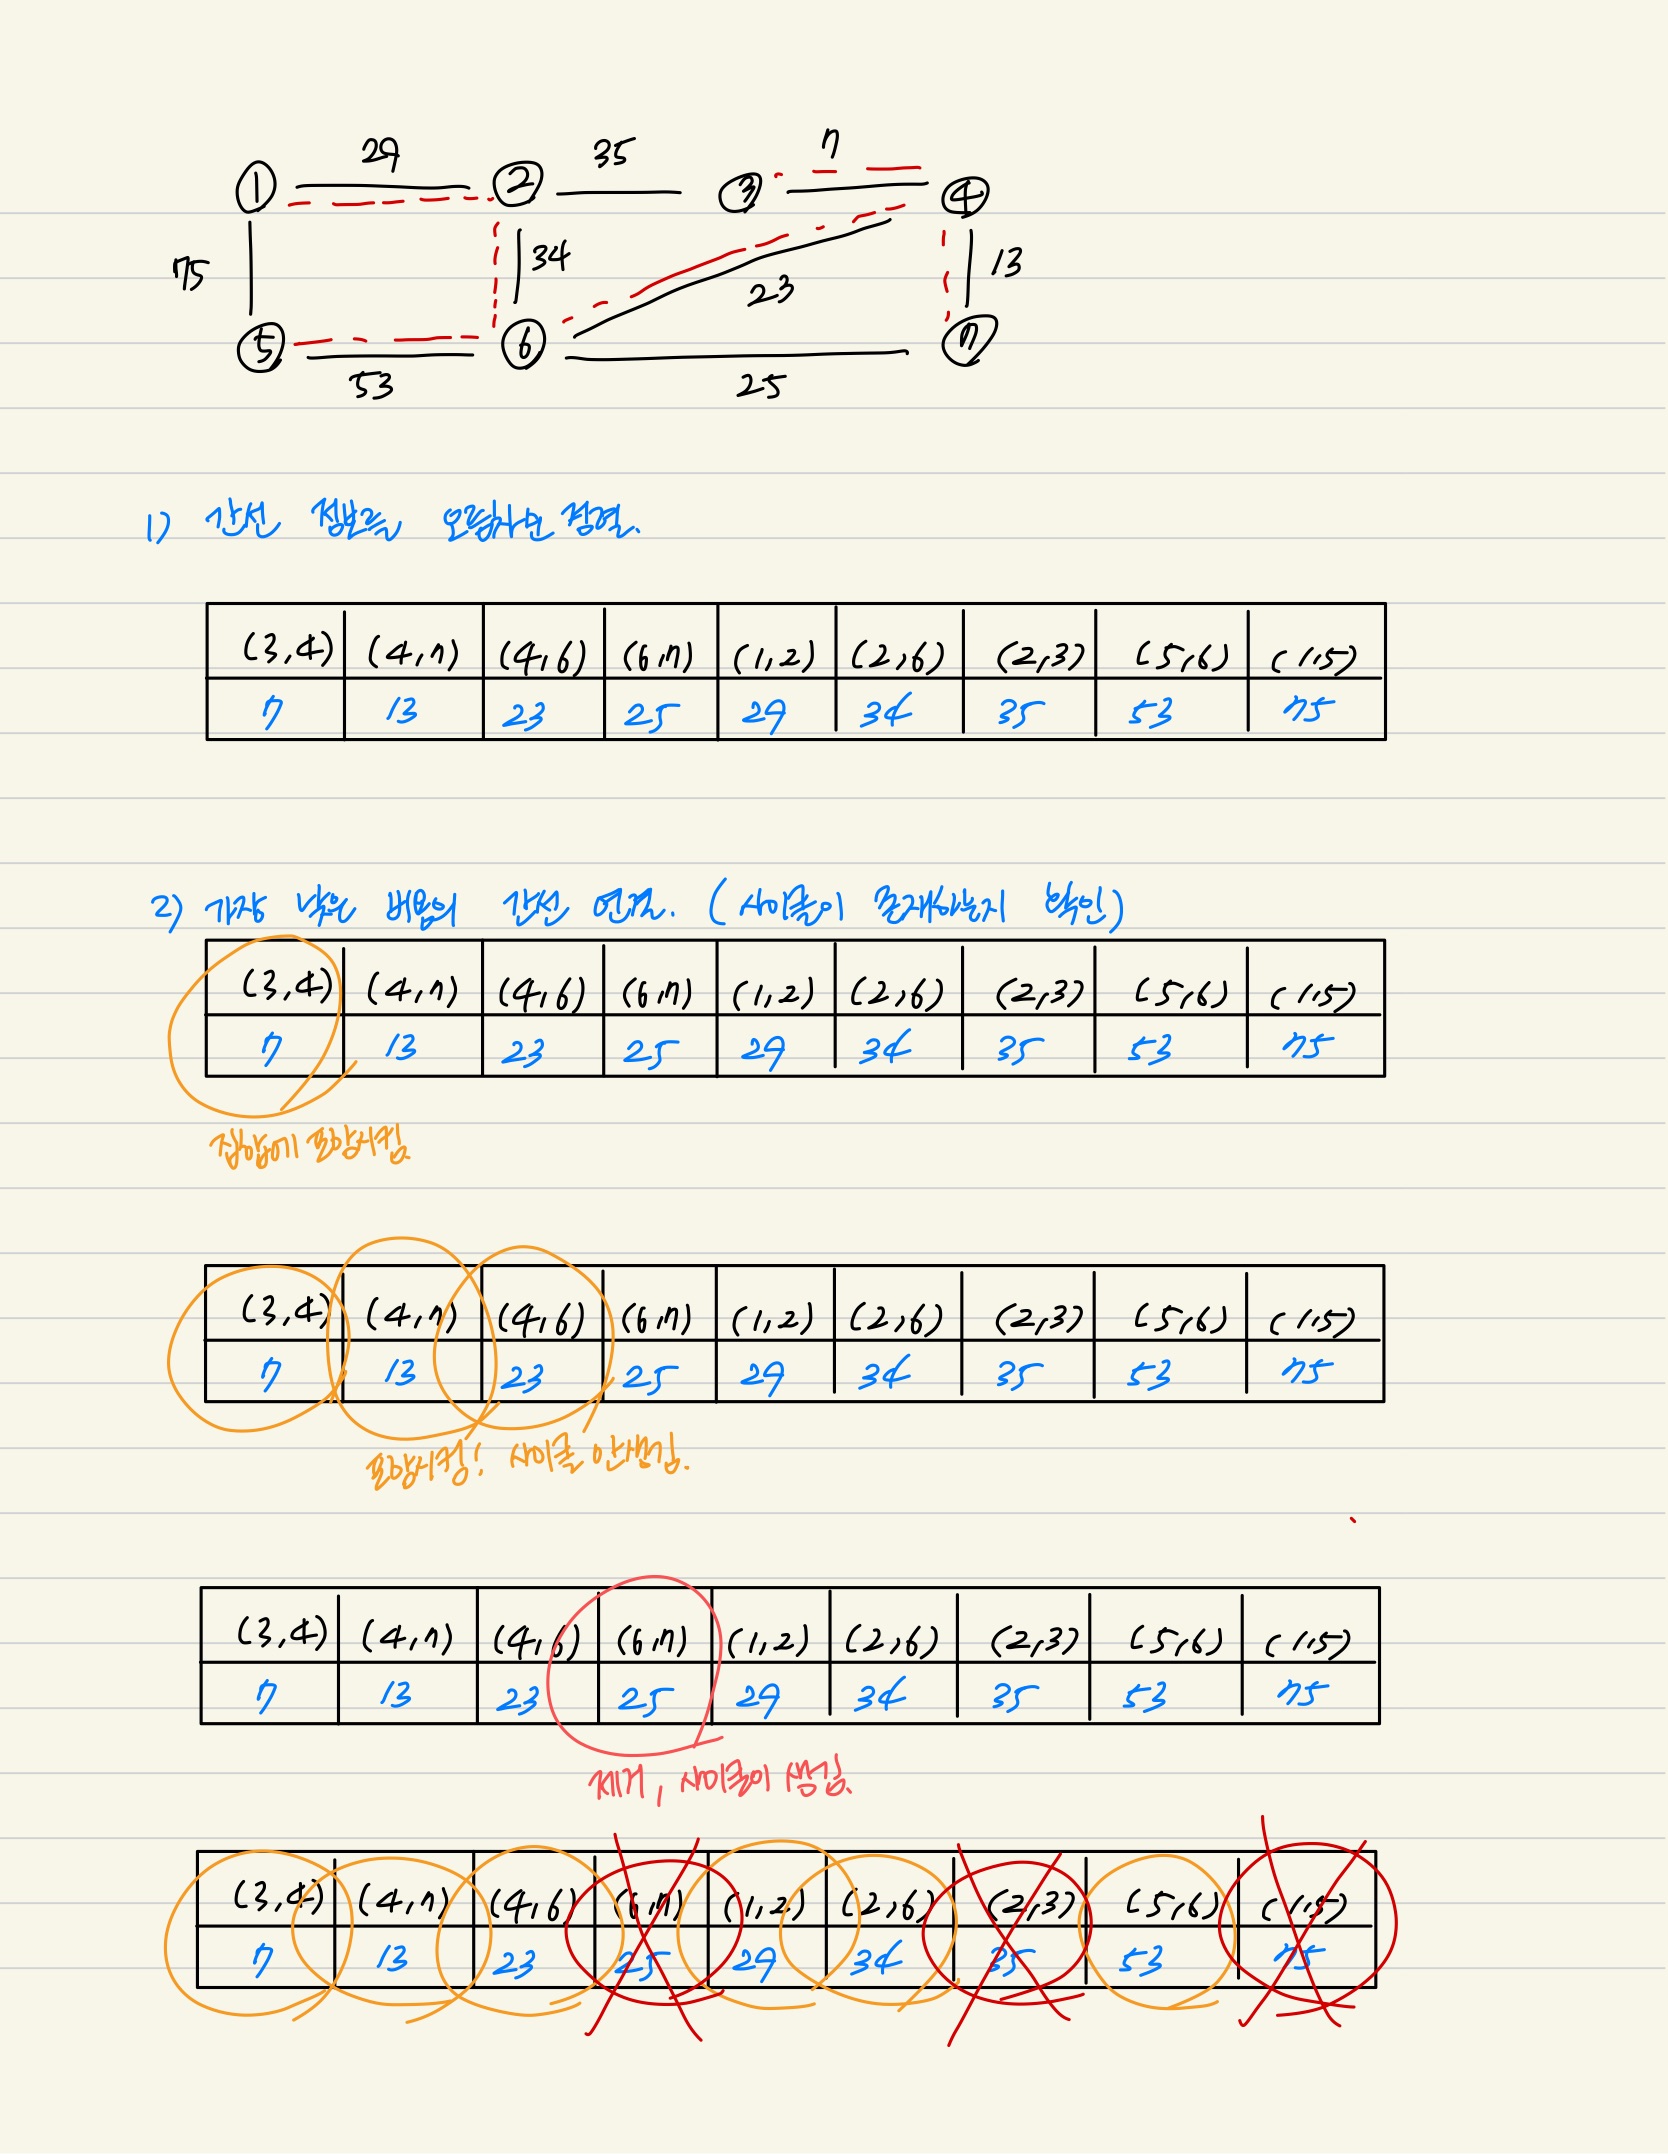 29 35 7
1 2 3 4
75 34 23 13
5 6 7
53 25
1) 간선 정보를 오름차순 정렬.
(3,4) (4,7) (4,6) (6,7) (1,2) (2,6) (2,3) (5,6) (1,5)
7 13 23 25 29 34 35 53 75
2) 가장 낮은 비용의 간선 연결. (사이클이 존재하는지 확인)
(3,4) (4,7) (4,6) (6,7) (1,2) (2,6) (2,3) (5,6) (1,5)
7 13 23 25 29 34 35 53 75
집합에 포함시킴
(3,4) (4,7) (4,6) (6,7) (1,2) (2,6) (2,3) (5,6) (1,5)
7 13 23 25 29 34 35 53 75
포함시킴! 사이클 안생김.
(3,4) (4,7) (4,6) (6,7) (1,2) (2,6) (2,3) (5,6) (1,5)
7 13 23 25 29 34 35 53 75
제거, 사이클이 생김.
(3,4) (4,7) (4,6) (6,7) (1,2) (2,6) (2,3) (5,6) (1,5)
7 13 23 25 29 34 35 53 75